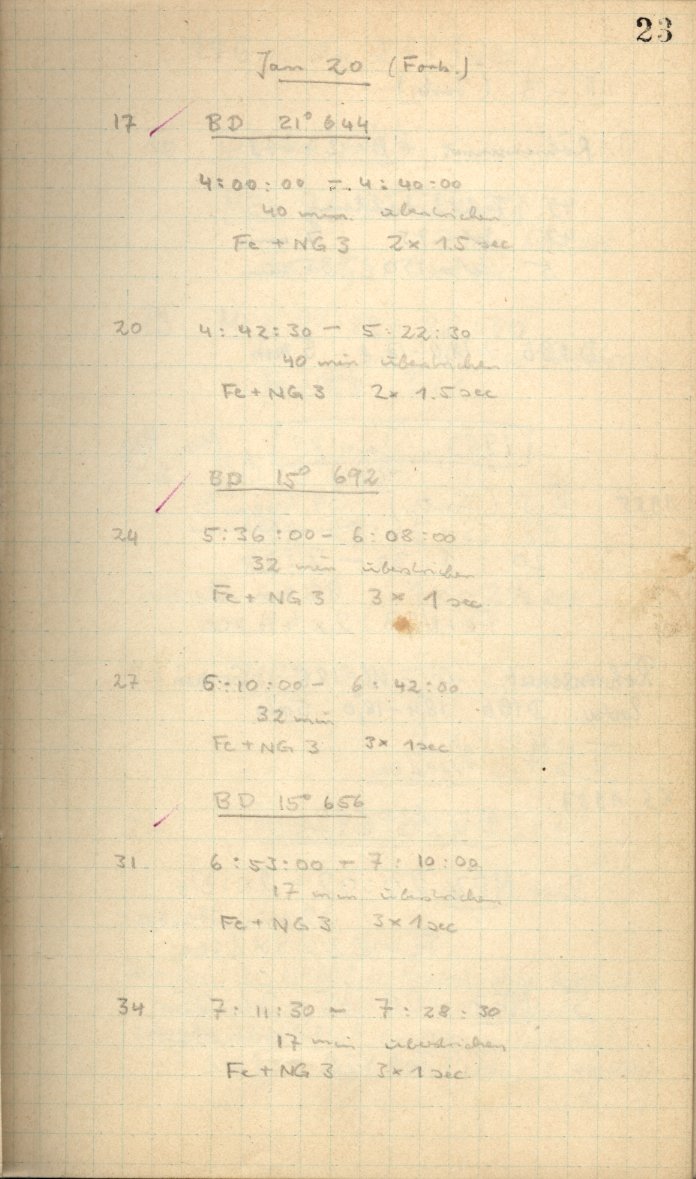 23
Jan 20 (Forts.)
17 BD 21° 644
4:00:00 – 4:40:00
40 min. überstrichen
Fe + NG 3 2 x 1.5 sec
20 4:42:30 – 5:22:30
40 min überstrichen
Fe + NG 3 2 x 1.5 sec
BD 15° 692
24 5:36:00 – 6:08:00
32 min überstrichen
Fe + NG 3 3 x 1 sec
27 6:10:00 – 6:42:00
32 min
Fe + NG 3 3 x 1 sec
BD 15° 656
31 6:53:00 – 7:10:00
17 min überstrichen
Fe + NG 3 3 x 1 sec
34 7:11:30 – 7:28:30
17 min überstrichen
Fe + NG 3 3 x 1 sec